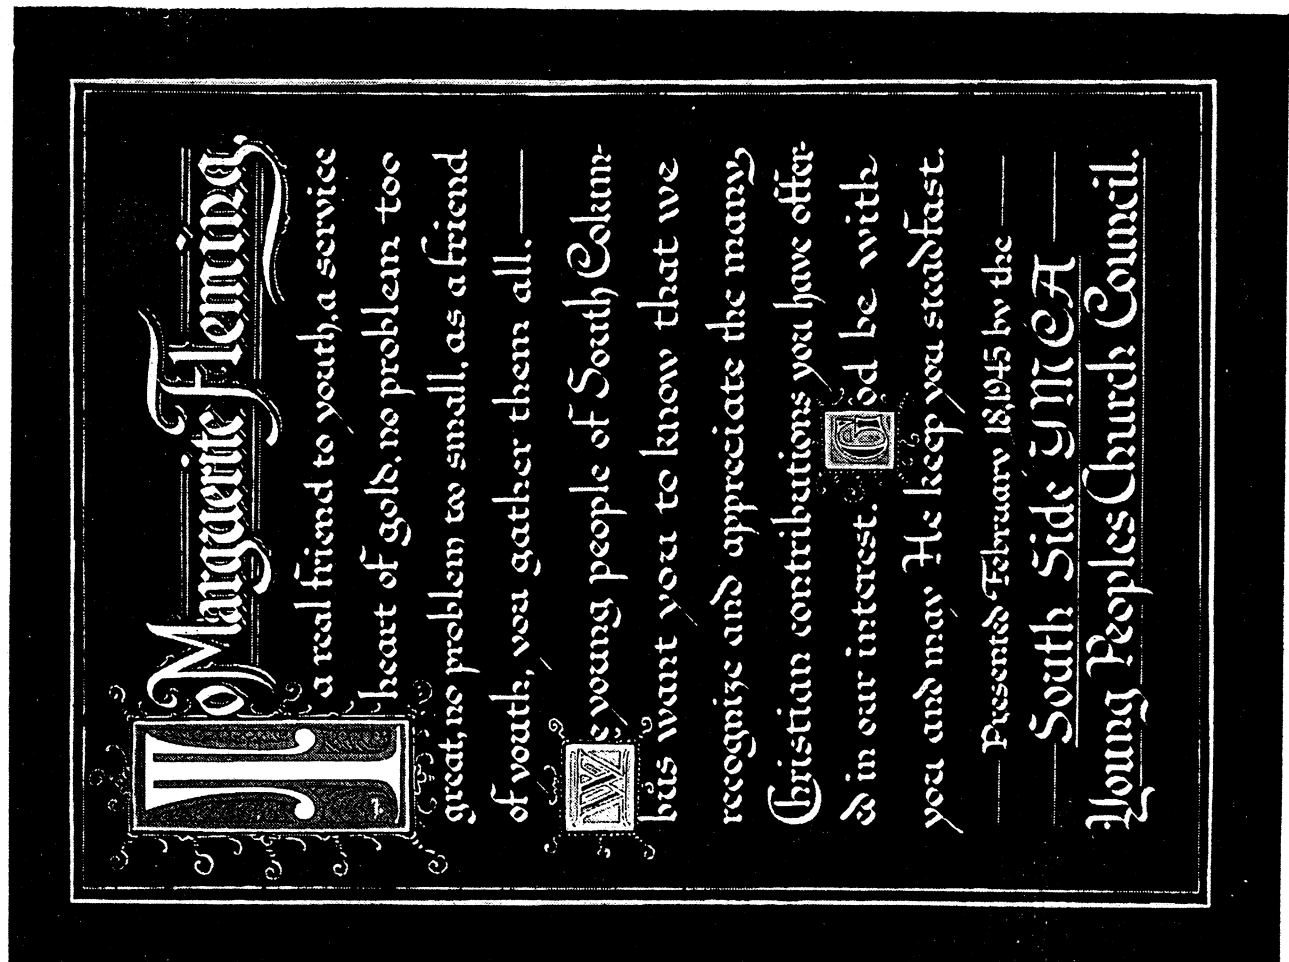 To Marguerite Fleming,
a real friend to youth, a service
heart of gold, no problem too
great, no problem too small, as a friend
of youth, you gather them all.
We young people of South Colum-
bus want you to know that we
recognize and appreciate the many,
Christian contributions you have offer-
ed in our interest. God be with
you and may He keep you steadfast.
Presented February 18, 1945 by the
South Side YMCA
Young Peoples Church Council.